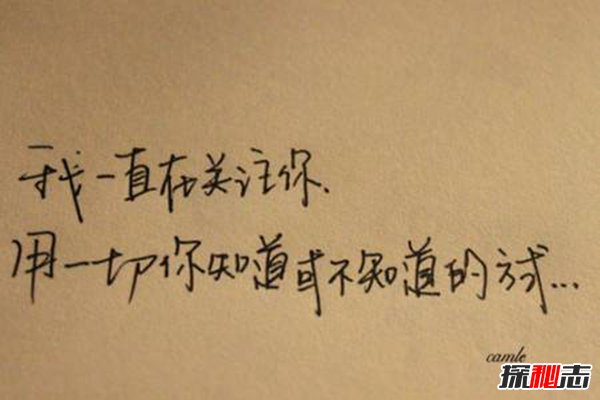 我一直在关注你.
用一切你知道或不知道的方式...
camle
探秘志